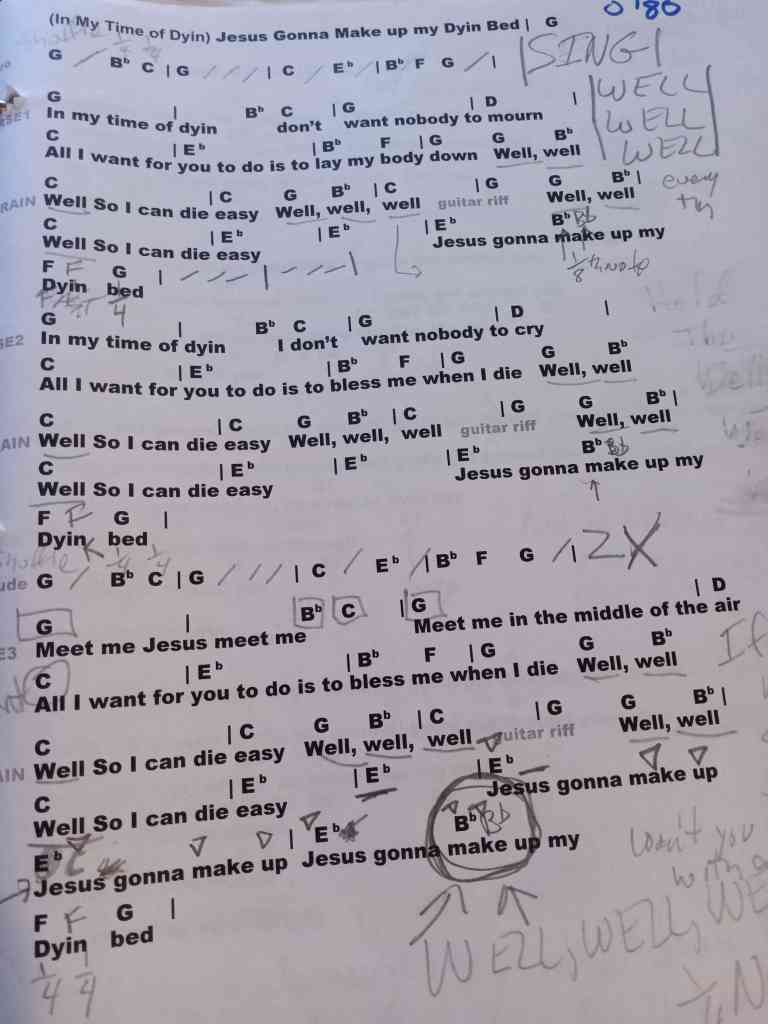 0'80
(In My Time of Dyin) Jesus Gonna Make up my Dyin Bed | G
G / Bb C | G / / / | C / Eb / | Bb F G / |
SING!
WELL
WELL
WELL
G | Bb C | G | D |
SE1 In my time of dyin don't want nobody to mourn
C | Eb | Bb F | G G Bb
All I want for you to do is to lay my body down Well, well
every
C | C G Bb | C | G G Bb |
RAIN Well So I can die easy Well, well, well guitar riff Well, well
C | Eb | Eb | Eb Bb Bb
Well So I can die easy Jesus gonna make up my
1/8 th note
F F G | / / / | / / / |
Dyin bed
FAST 1/4
G | Bb C | G | D |
SE2 In my time of dyin I don't want nobody to cry
C | Eb | Bb F | G G Bb
All I want for you to do is to bless me when I die Well, well
C | C G Bb | C | G G Bb |
AIN Well So I can die easy Well, well, well guitar riff Well, well
C | Eb | Eb | Eb Bb Bb
Well So I can die easy Jesus gonna make up my
F F G |
Dyin bed
1/4 1/4
ude G / Bb C | G / / / | C / Eb / | Bb F G / | 2X
G | Bb C | G | D
E3 Meet me Jesus meet me Meet me in the middle of the air
C | Eb | Bb F | G G Bb
All I want for you to do is to bless me when I die Well, well
If
C | C G Bb | C | G G Bb |
AIN Well So I can die easy Well, well, well guitar riff Well, well
C | Eb | Eb | Eb
Well So I can die easy Jesus gonna make up
Eb | Eb Bb Bb
Jesus gonna make up Jesus gonna make up my
won't you
with a
F F G |
Dyin bed
1/4 1/4
WELL, WELL, WE